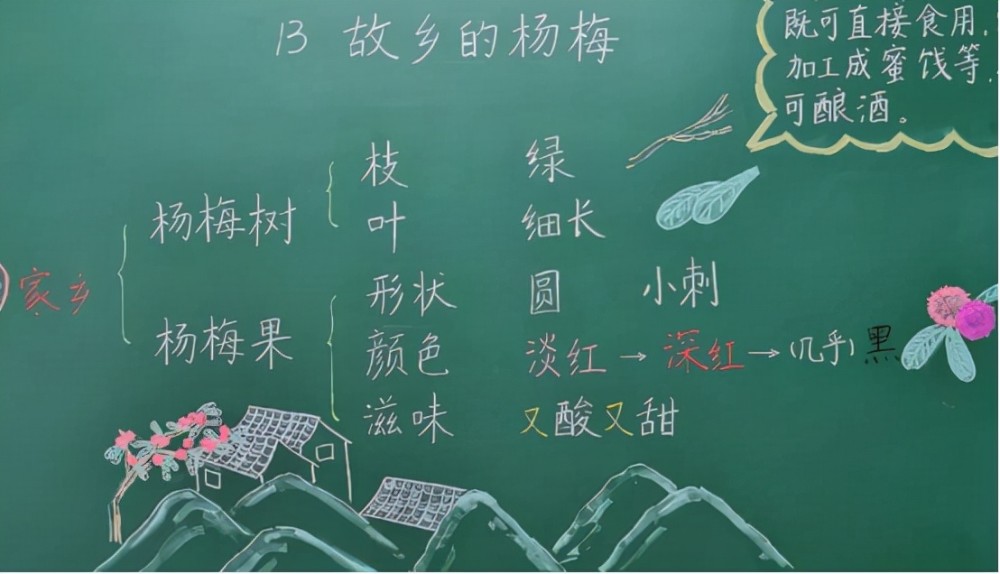 13 故乡的杨梅
既可直接食用,
加工成蜜饯等,
可酿酒。
家乡
杨梅树
枝 绿
叶 细长
杨梅果
形状 圆 小刺
颜色 淡红→深红→(几乎)黑
滋味 又酸又甜